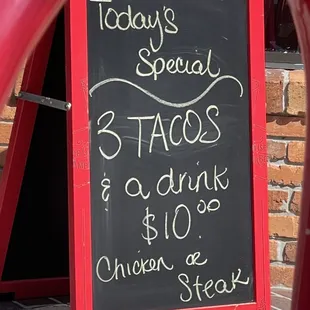 Today's
Special
3 TACOS
& a drink
$10.00
Chicken or
Steak